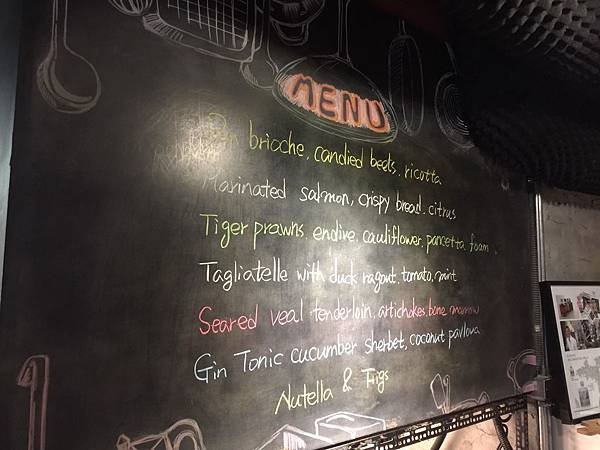 MENU
brioche, candied beets, ricotta
Marinated salmon, crispy bread, citrus
Tiger prawns, endive, cauliflower, pancetta foam
Tagliatelle with duck ragout, tomato, mint
Seared veal tenderloin, artichokes, bone marrow
Gin Tonic cucumber sherbet, coconut pavlova
Nutella & Figs